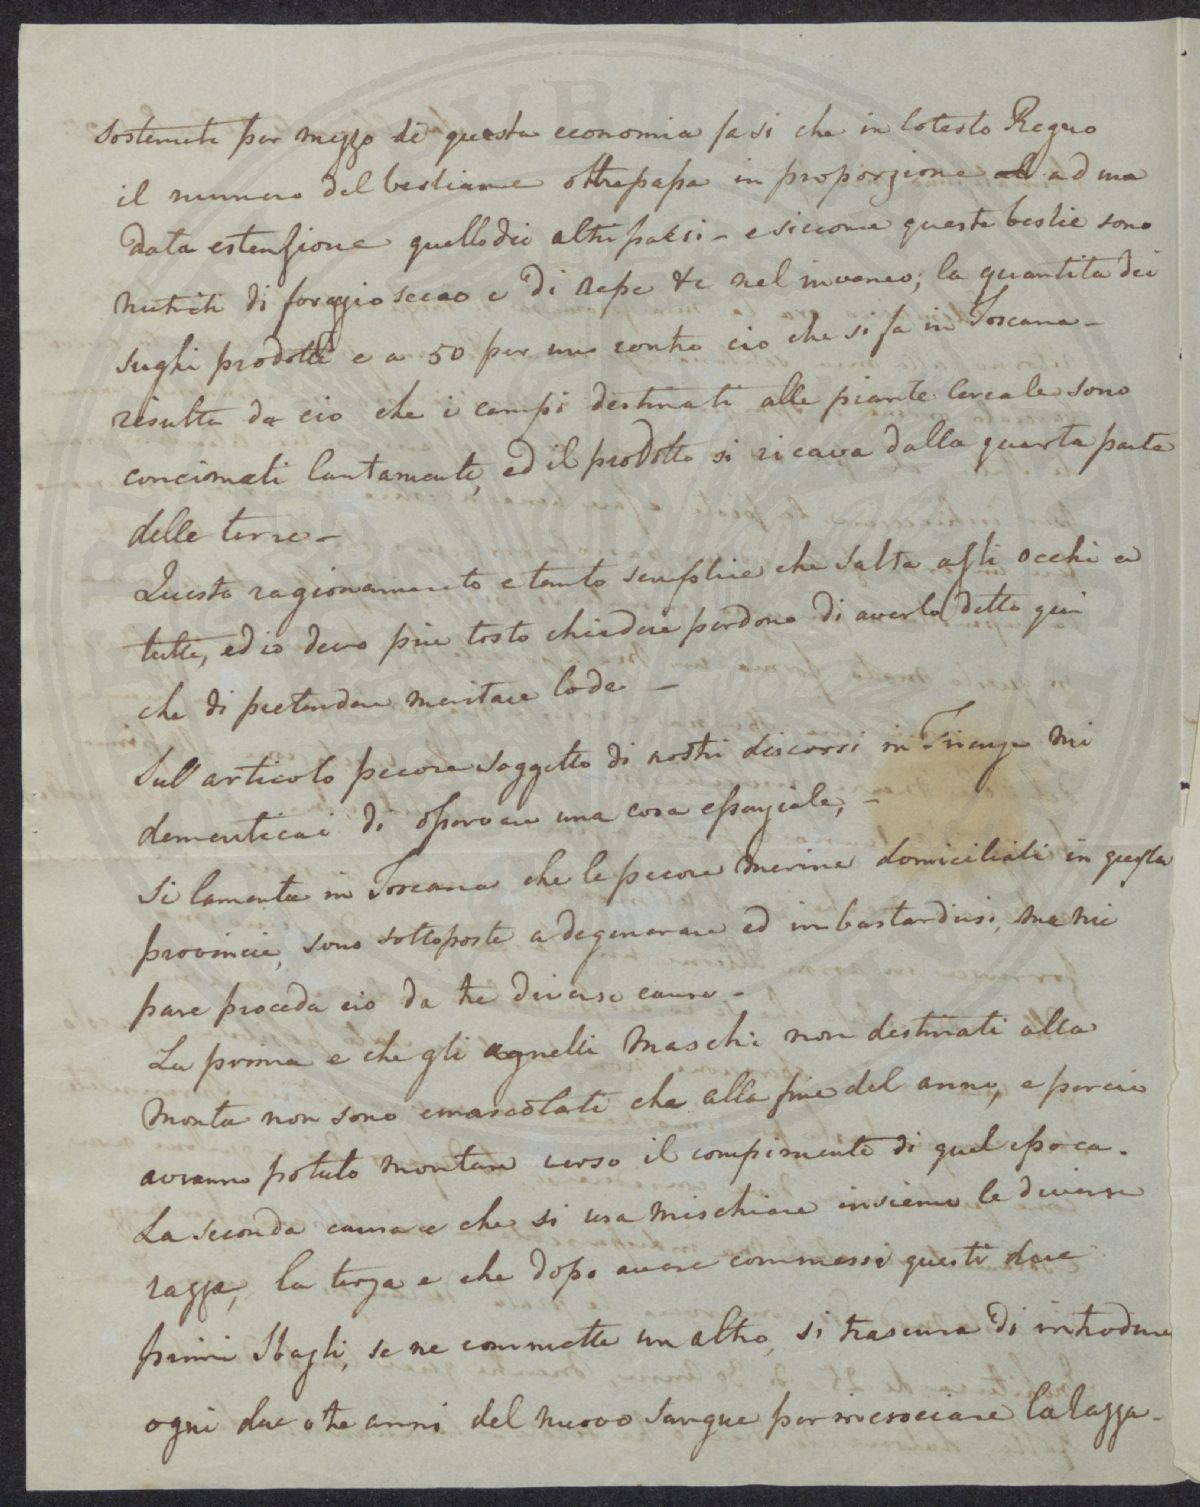 sostenute per mezzo di questa economia fa si che in cotesto Regno
il numero del bestiame oltrepassa in proporzione ad una
data estensione quello dei altri paesi - e siccome queste bestie sono
nutriti di foraggio secco e di rape &c nel inverno; la quantita dei
sughi prodotti e a 50 per uno contro cio che si fa in Toscana -
risulta da cio che i campi destinati alle piante Cereale sono
concimati lautamente, ed il prodotto si ricava dalla quarta parte
delle terre -
Questo ragionamento e tanto semplice che salta agli occhi a
tutti, ed io devo piu tosto chiedere perdono di averlo detto qui
che di pretendere meritare lode -
Sull' articolo pecore soggetto di nostri discorsi in Firenze mi
dementicai di osservare una cosa essenziale; -
Si lamenta in Toscana che le pecore Merine domiciliati in questa
provincia, sono sottoposte a degenerare ed imbastardirsi, ma mi
pare proceda cio da tre diverse cause -
La prima e che gli agnelli Maschi non destinati alla
Monta non sono emascolati che alla fine del anno, e percio
avranno potuto montare verso il compimento di quel epoca.
La seconda causa e che si usa mischiare insieme le diverse
razze, la terza e che dopo avere commessi questi due
primi sbagli, se ne commette un altro, si trascura di introdurre
ogni due o tre anni del nuovo sangue per rincrociare la razza -